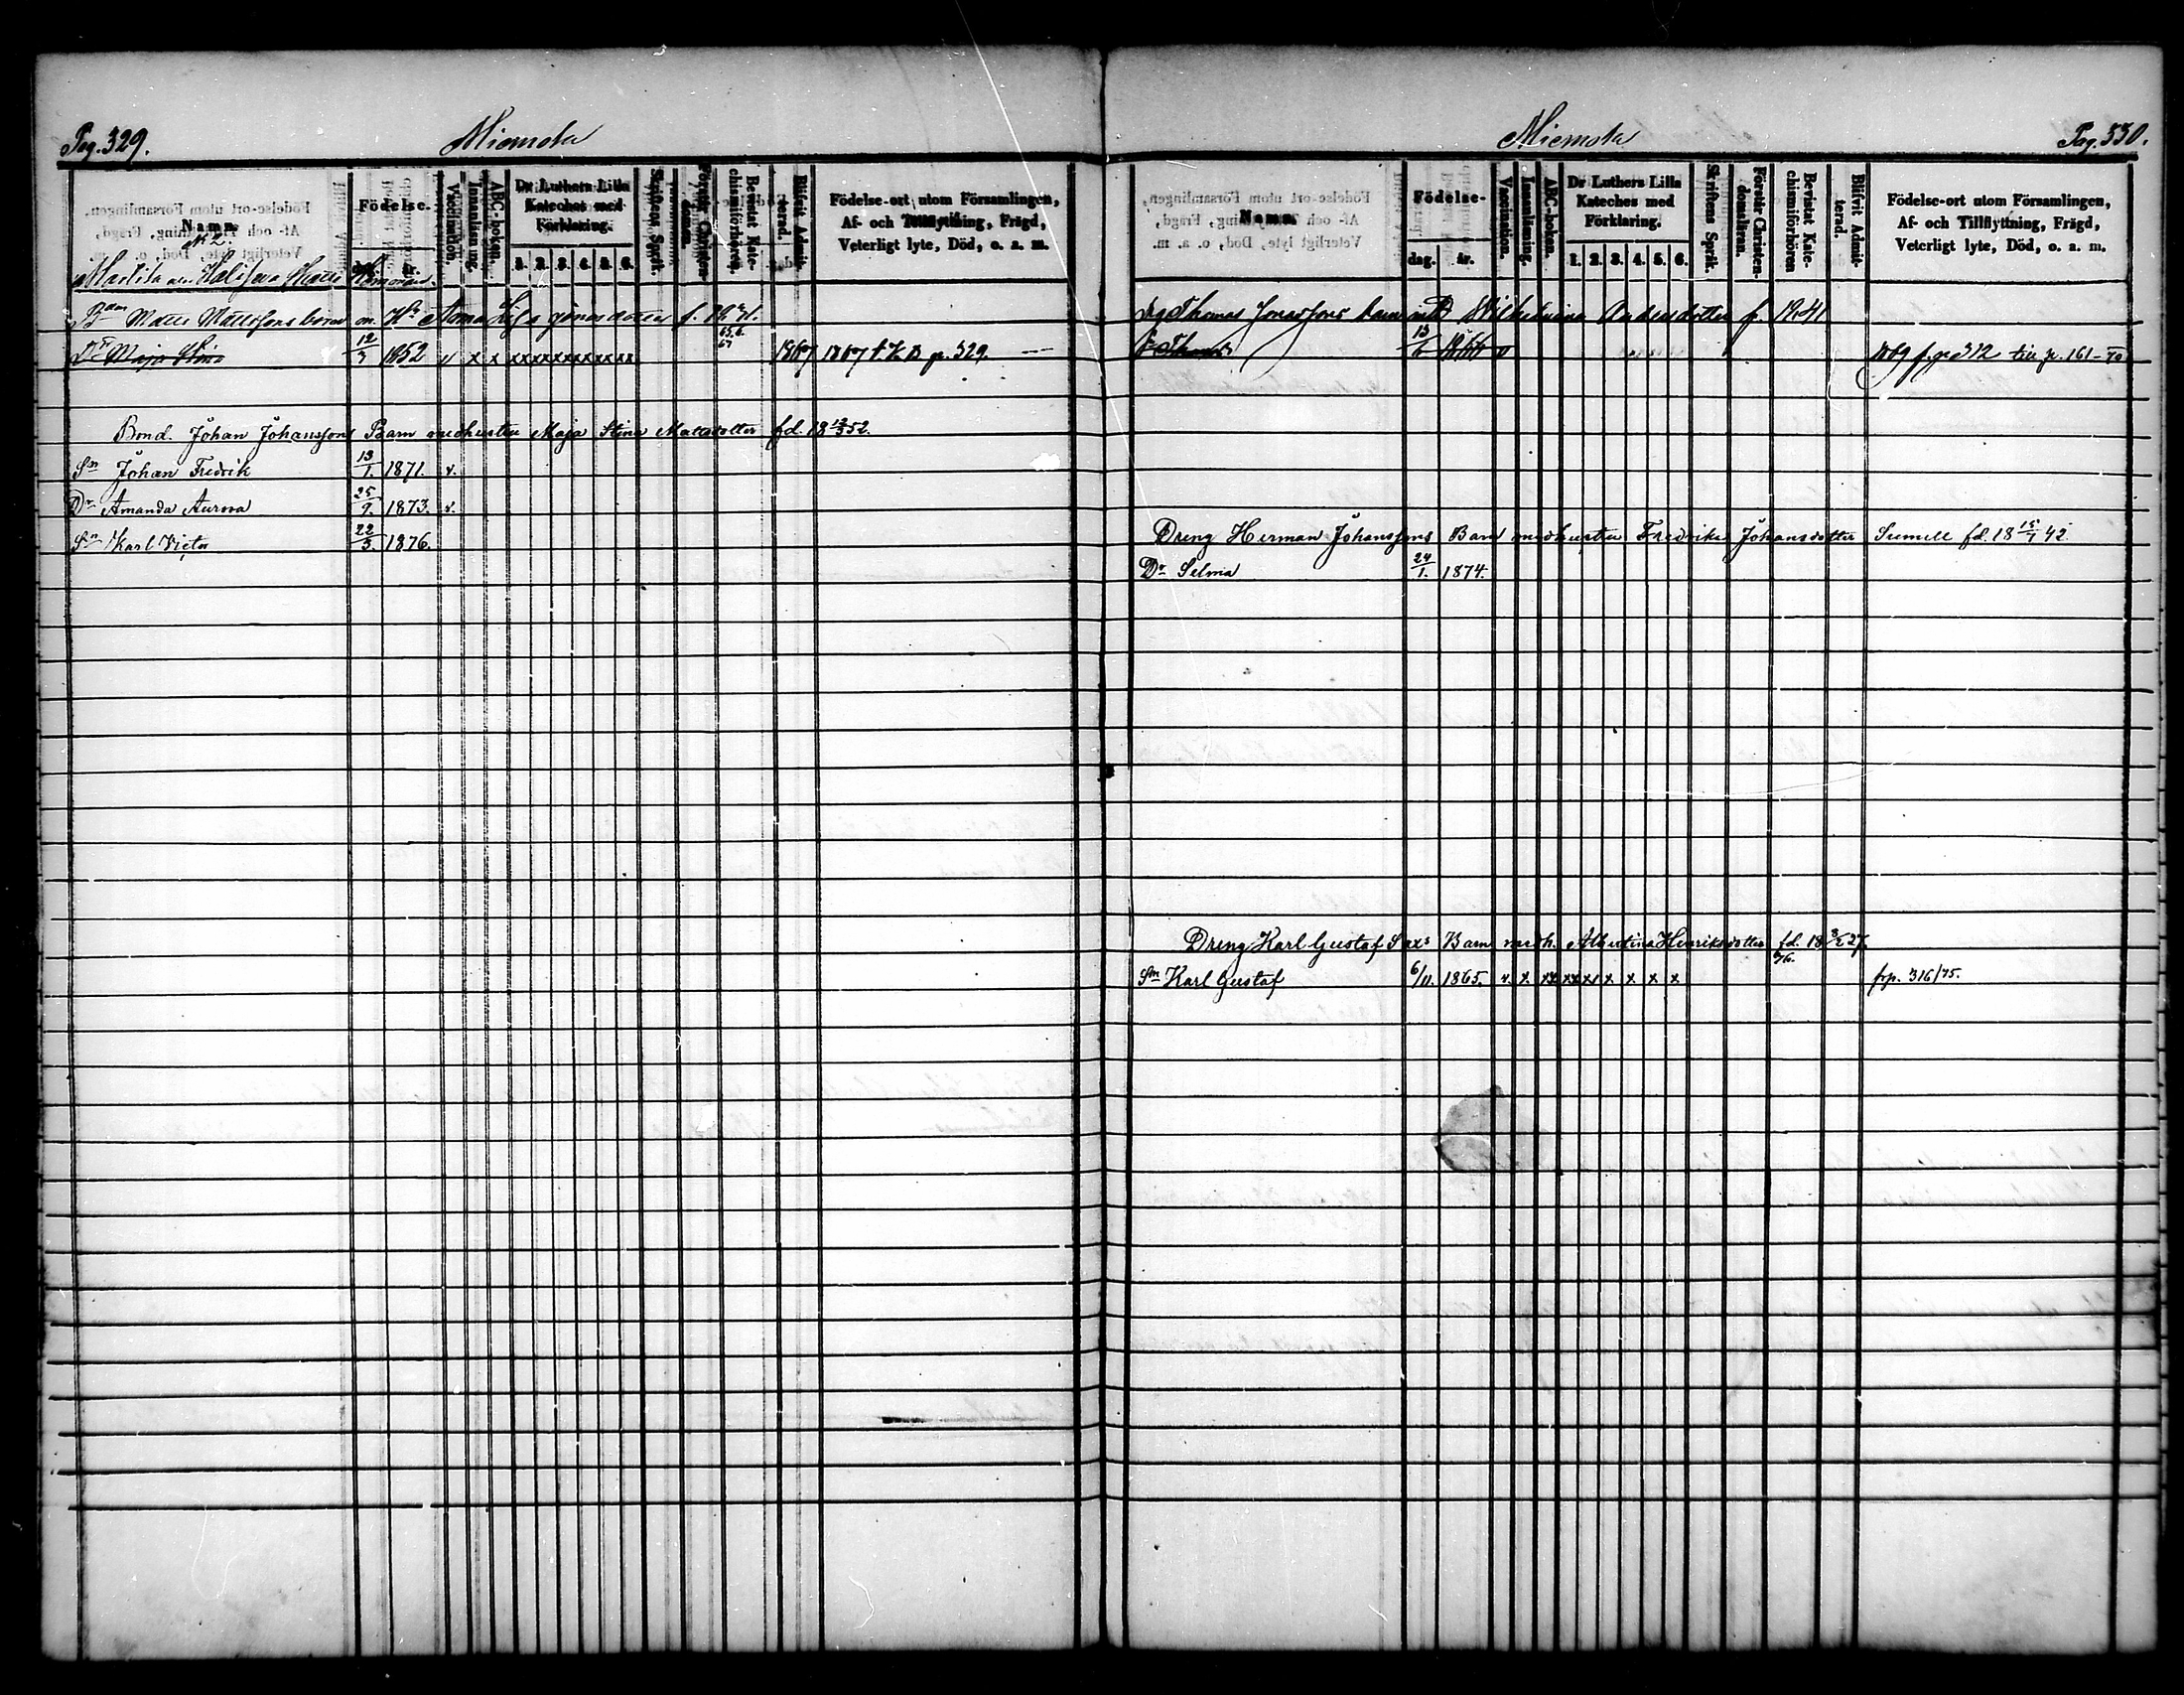 Pag. 329.
Miemola
Namn
№ 2.
Födelse-
dag.
år.
Vaccination.
Innanläsning.
ABC-boken.
Dr Luthers Lilla Kateches med Förklaring.
1. 2. 3. 4. 5. 6.
Skriftens Språk.
Förstår Christendomsläran.
Bevistat Katechismiförhören.
Blifvit Admitterad.
Födelse-ort utom Församlingen,
Af- och Tillflyttning, Frägd,
Veterligt lyte, Död, o. a. m.
Matts Mattssons barn m. Hu Anna Lisa f.
Dr Maja Stina 12/3 1852 v x x xxxxxxxxxxx 65.6. 67 1867 1867 t K B p. 329.
Bond. Johan Johanssons Barn med hustru Maja Stina Mattsdotter fd. 18 12/3 52.
Sn Johan Fredrik 13/1. 1871. v.
Dr Amanda Aurora 25/9. 1873. v.
Sn Karl Victor 22/3. 1876.
Pag. 330.
Miemola
Namn
Födelse-
dag.
år.
Vaccination.
Innanläsning.
ABC-boken.
Dr Luthers Lilla
Kateches med
Förklaring.
1. 2. 3. 4. 5. 6.
Skriftens Språk.
Förstår Christendomsläran.
Bevistat Katechismiförhören
Blifvit Admitterad.
Födelse-ort utom Församlingen,
Af- och Tillflyttning, Frägd,
Veterligt lyte, Död, o. a. m.
Dg Thomas Jonassons barn m Wilhelmina Andersdotter f. 1841
13/6 1866 v p. 161-70
Dreng Herman Johanssons Barn med hustru Fredrika Johansdotter Sumell fd. 18 15/1 42.
Dr Selma 24/1. 1874.
Dreng Karl Gustaf Sax's Barn med h. Albertina Henriksdotter fd. 18 3/2 27.
76.
Sn Karl Gustaf 6/11. 1865. v. x. xx xx x x x x x frp. 316/75.